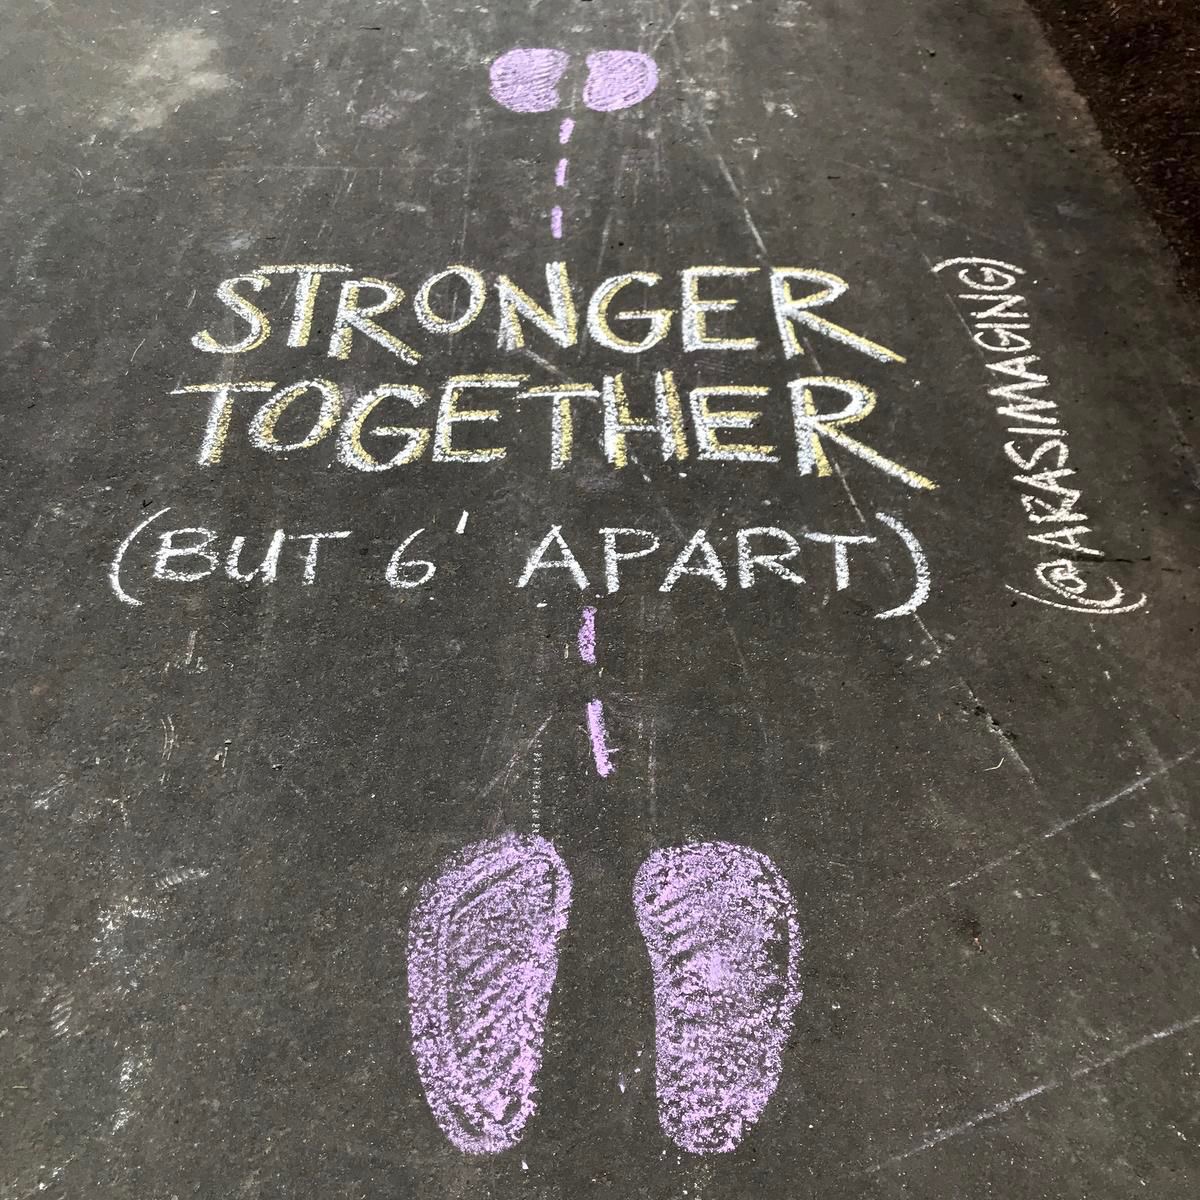 STRONGER
TOGETHER
(BUT 6' APART)
(@ARASIMAGING)